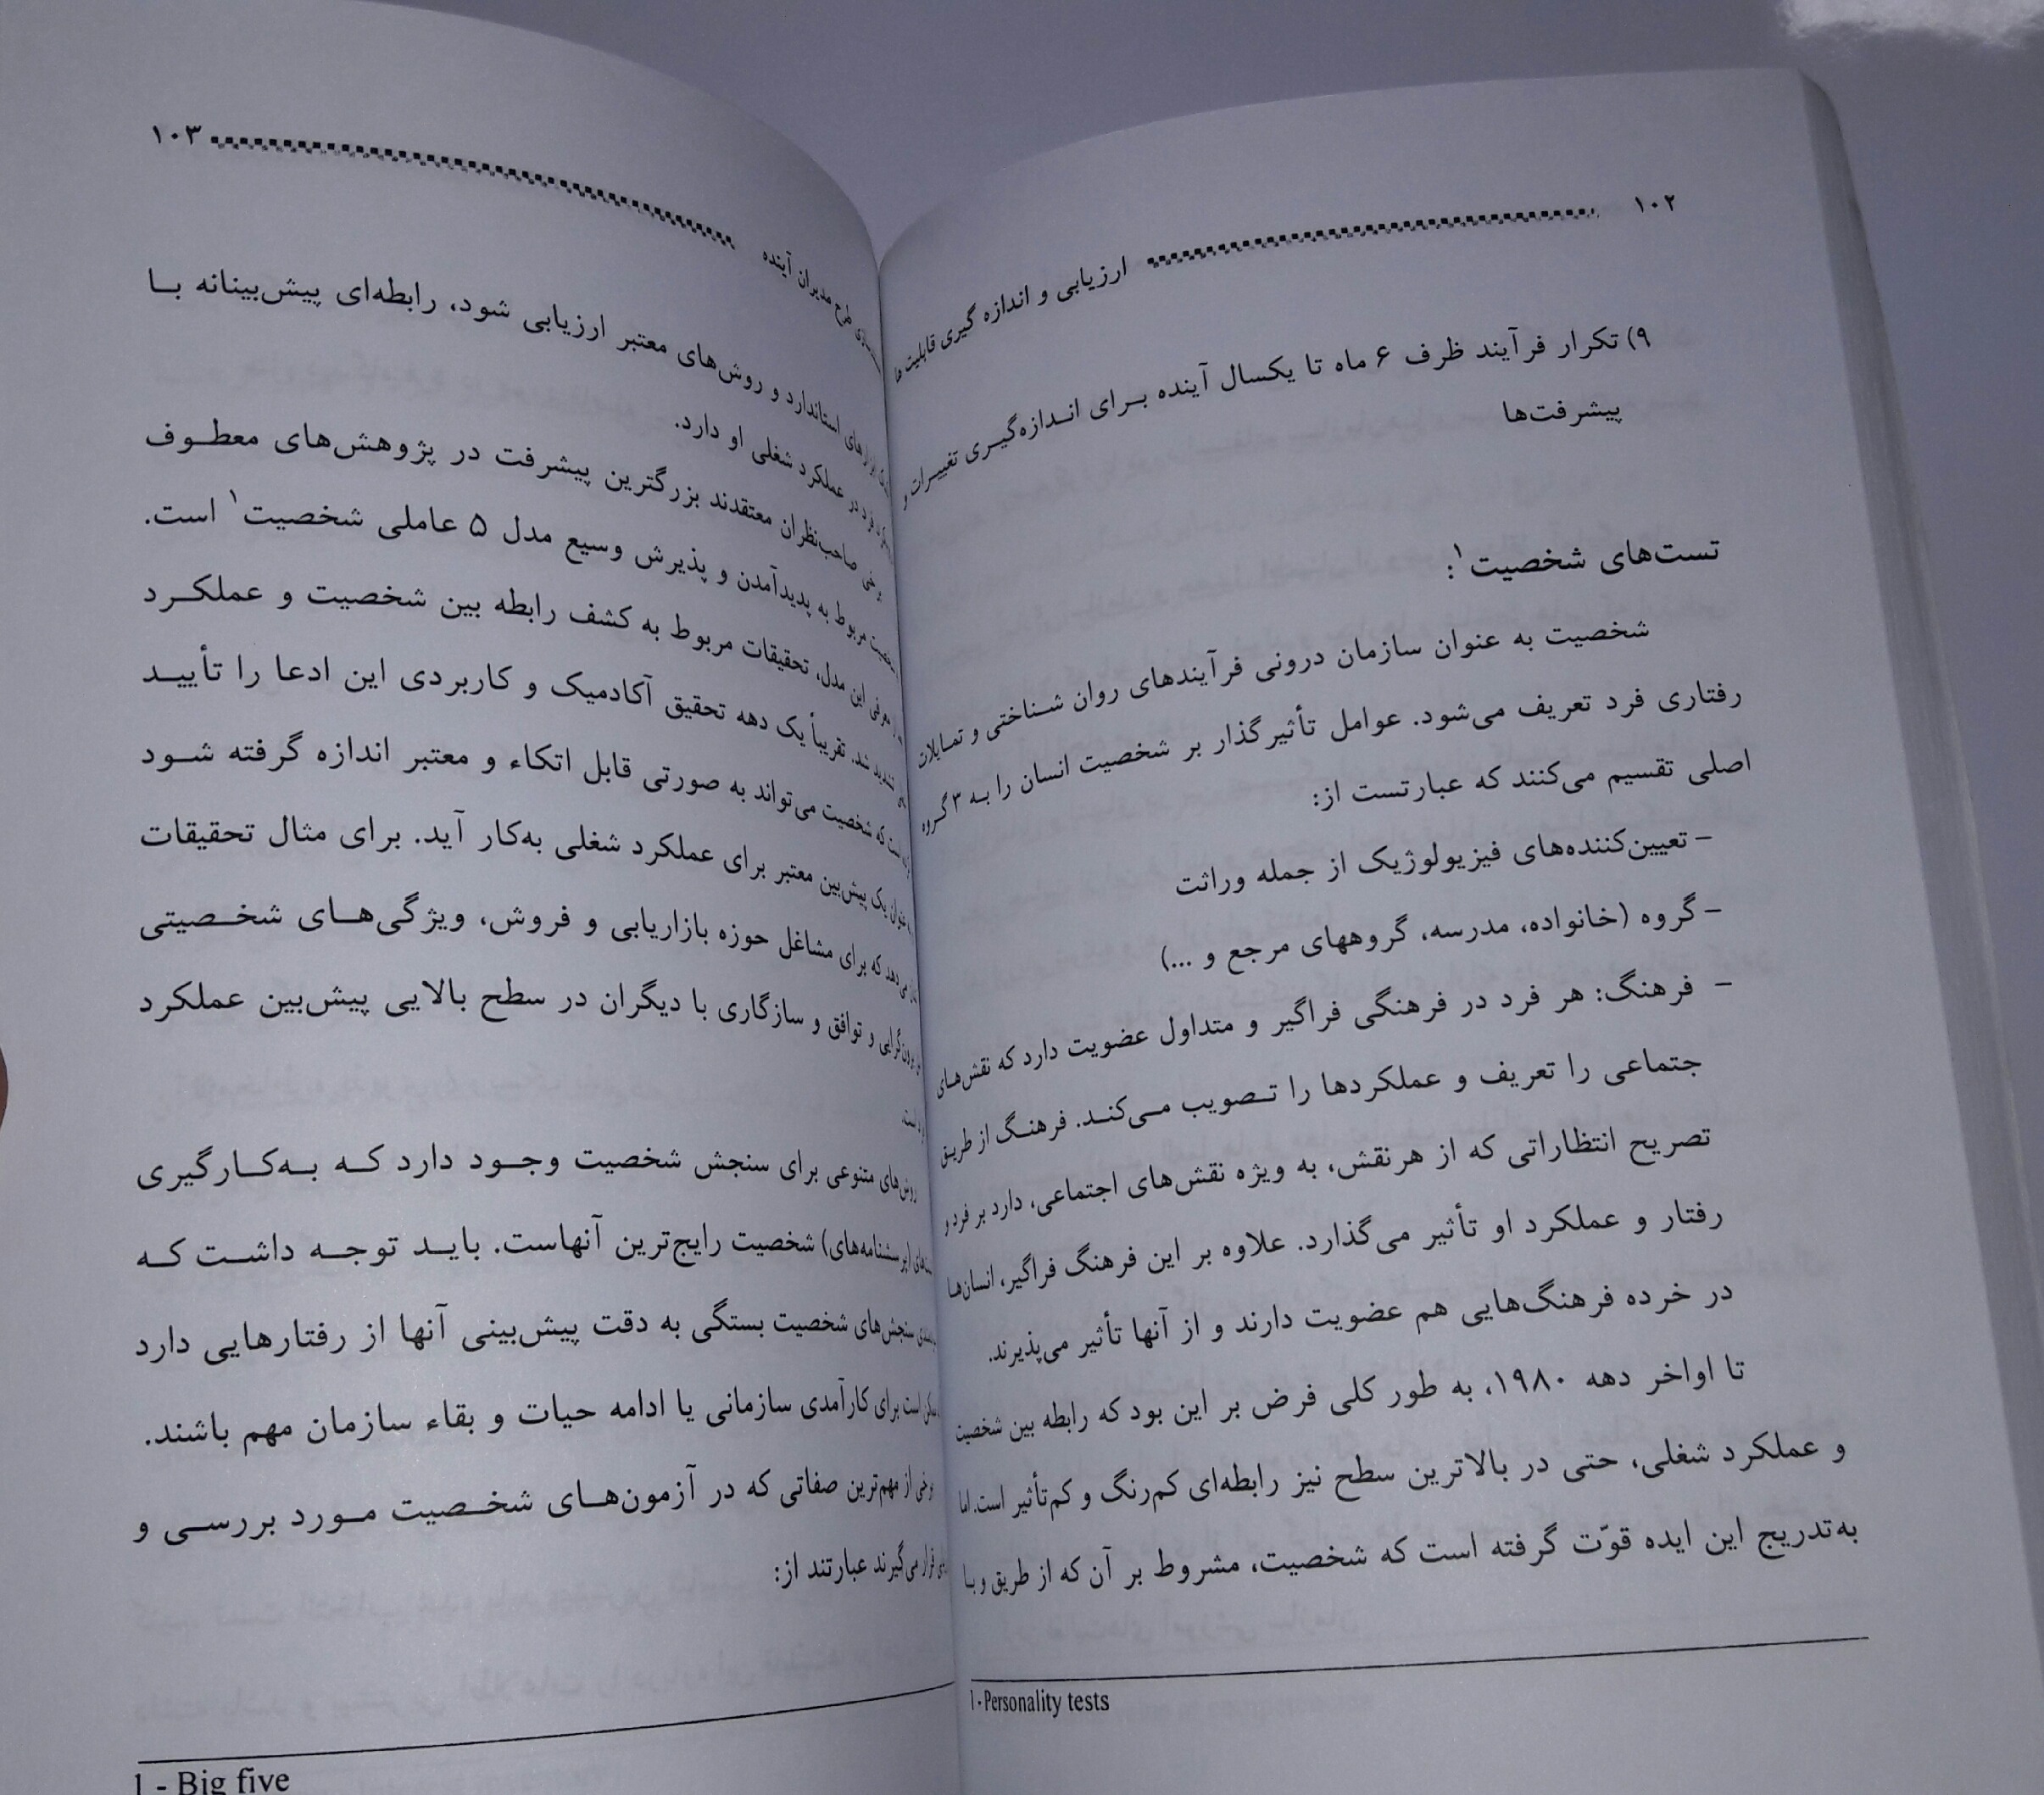 ۱۰۲
ارزیابی و اندازه گیری قابلیت ها
۹) تکرار فرآیند ظرف ۶ ماه تا یکسال آینده برای اندازه‌گیری تغییرات و
پیشرفت‌ها
تست‌های شخصیت۱:
شخصیت به عنوان سازمان درونی فرآیندهای روان شناختی و تمایلات
رفتاری فرد تعریف می‌شود. عوامل تأثیرگذار بر شخصیت انسان را به ۳ گروه
اصلی تقسیم می‌کنند که عبارتست از:
– تعیین‌کننده‌های فیزیولوژیک از جمله وراثت
– گروه (خانواده، مدرسه، گروههای مرجع و ...)
– فرهنگ: هر فرد در فرهنگی فراگیر و متداول عضویت دارد که نقش‌های
جتماعی را تعریف و عملکردها را تصویب می‌کند. فرهنگ از طریق
تصریح انتظاراتی که از هرنقش، به ویژه نقش‌های اجتماعی، دارد بر فرد و
رفتار و عملکرد او تأثیر می‌گذارد. علاوه بر این فرهنگ فراگیر، انسان‌ها
در خرده فرهنگ‌هایی هم عضویت دارند و از آنها تأثیر می‌پذیرند.
تا اواخر دهه ۱۹۸۰، به طور کلی فرض بر این بود که رابطه بین شخصیت
و عملکرد شغلی، حتی در بالاترین سطح نیز رابطه‌ای کم‌رنگ و کم‌تأثیر است. اما
به‌تدریج این ایده قوّت گرفته است که شخصیت، مشروط بر آن که از طریق و با
1- Personality tests
۱۰۳
طرح مدیران آینده
ابزارهای استاندارد و روش‌های معتبر ارزیابی شود، رابطه‌ای پیش‌بینانه با
فرد در عملکرد شغلی او دارد.
برخی صاحب‌نظران معتقدند بزرگترین پیشرفت در پژوهش‌های معطوف
مربوط به پدیدآمدن و پذیرش وسیع مدل ۵ عاملی شخصیت۱ است.
معرفی این مدل، تحقیقات مربوط به کشف رابطه بین شخصیت و عملکرد
شدید شد. تقریباً یک دهه تحقیق آکادمیک و کاربردی این ادعا را تأیید
است که شخصیت می‌تواند به صورتی قابل اتکاء و معتبر اندازه گرفته شود
عنوان یک پیش‌بین معتبر برای عملکرد شغلی به‌کار آید. برای مثال تحقیقات
می‌دهد که برای مشاغل حوزه بازاریابی و فروش، ویژگی‌های شخصیتی
برون‌گرایی و توافق و سازگاری با دیگران در سطح بالایی پیش‌بین عملکرد
است.
روش‌های متنوعی برای سنجش شخصیت وجود دارد که به‌کارگیری
(پرسشنامه‌های) شخصیت رایج‌ترین آنهاست. باید توجه داشت که
سنجش‌های شخصیت بستگی به دقت پیش‌بینی آنها از رفتارهایی دارد
ممکن است برای کارآمدی سازمانی یا ادامه حیات و بقاء سازمان مهم باشند.
برخی از مهم‌ترین صفاتی که در آزمون‌های شخصیت مورد بررسی و
قرار می‌گیرند عبارتند از:
1 - Big five